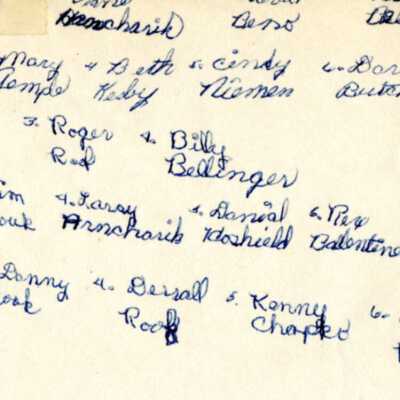 Arncharik Beno
Mary 4. Beth 5. Cindy 6. Dar
Temple Kesby Niemen Buton
3. Roger 4. Billy
Rod Bellinger
im 4. Laroy 5. Danial 6. Rex
ouk Arncharik Hoshield Balentine
Danny 4. Derrall 5. Kenny 6.
ook Rook Chapko